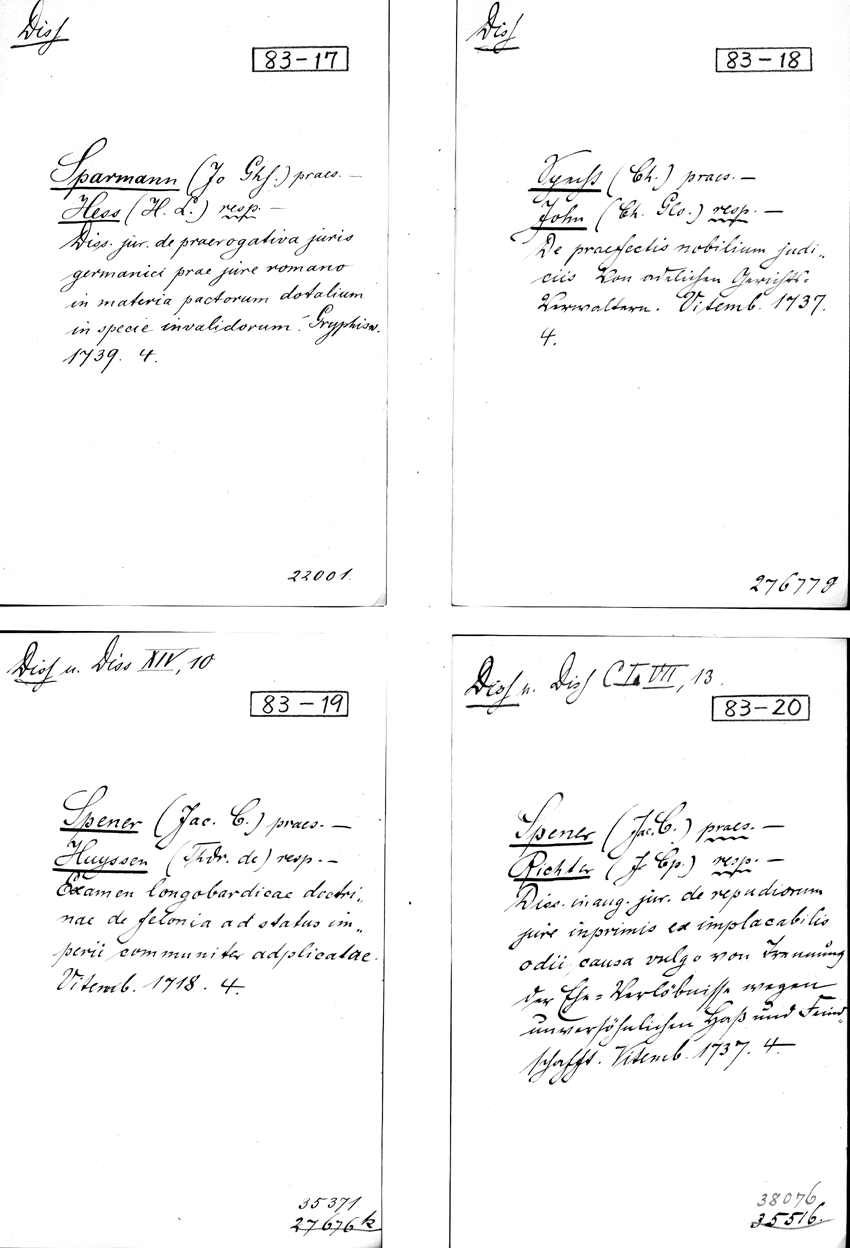 Diss
83-17
Sparmann (Jo Ghf.) praes. —
Hess (H. L.) resp. —
Diss. jur. de praerogativa juris
germanici prae jure romano
in materia pactorum dotalium
in specie invalidorum. Gryphisw.
1739. 4.
22001.
Diss
83-18
(Ch.) praes. —
John (Ch. Glo.) resp. —
De praefectis nobilium judi„
ciis Von adelichen Gerichts-
Verwaltern. Vitemb. 1737.
4.
27677
Diss u. Diss XIV, 10
83-19
Spener (Jac. C.) praes. —
Huyssen (Thdr. de) resp. —
Examen longobardicae doctri„
nae de felonia ad status im„
perii communiter adplicatae.
Vitemb. 1718. 4.
35371
27676 k
Diss u. Diss VII, 13.
83-20
Spener (Jac. C.) praes. —
Richter (Jo Cp.) resp. —
Diss. inaug. jur. de repudiorum
jure inprimis ex implacabilis
odii causa vulgo von Trennung
der Ehe-Verlöbnisse wegen
unversöhnlichen Haß und Feind„
schafft. Vitemb. 1737. 4.
38076
35516.